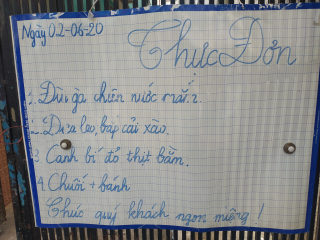 Ngày 02-06-20
Thực Đơn
1. Đùi gà chiên nước mắm.
2. Dưa leo, bắp cải xào.
3 Canh bí đỏ thịt bằm.
4. Chuối + bánh
Chúc quý khách ngon miệng!